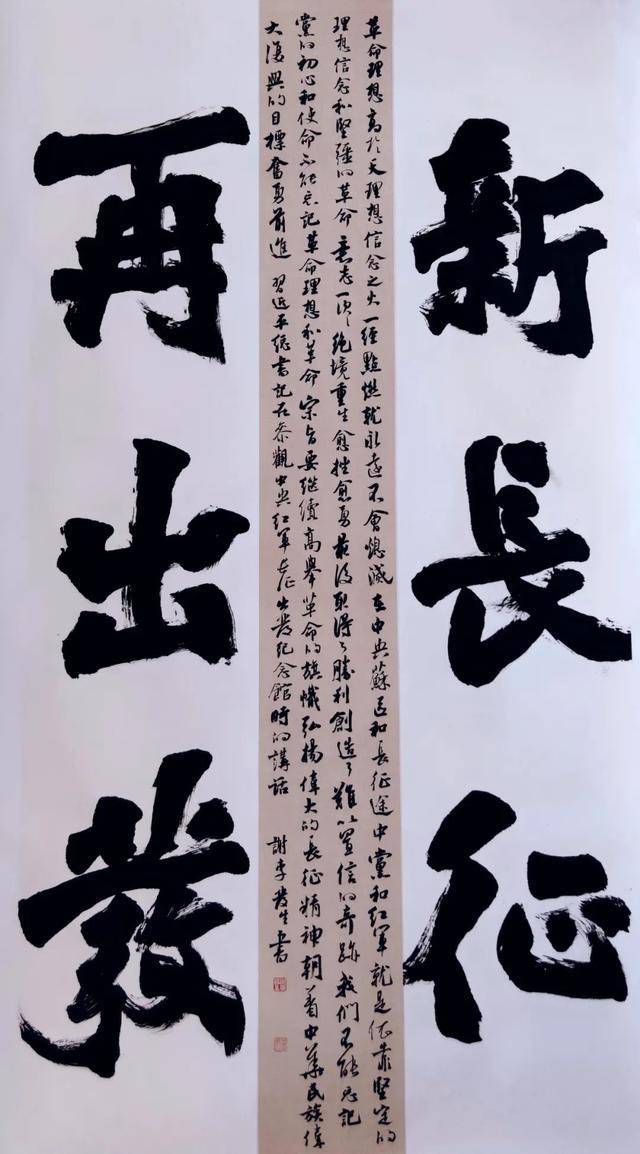 新長征
革命理想高於天理想信念之火一經點燃就永遠不會熄滅在中央蘇區和長征途中黨和紅軍就是依靠堅定的
理想信念和堅彊的革命意志一次次絕境重生愈挫愈勇最後取得了勝利創造了難以置信的奇跡我們不能忘記
黨的初心和使命不能忘記革命理想和革命宗旨要繼續高舉革命的旗幟弘揚偉大的長征精神朝着中華民族偉
大復興的目標奮勇前進 習近平總書記在參觀中央紅軍長征出發紀念館時的講話 謝李發生書
再出發